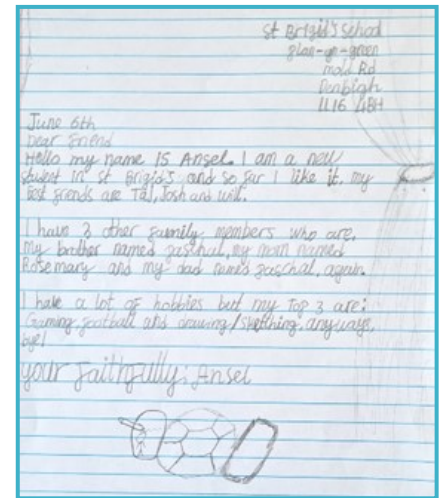 St Brigid's School
glan-yr-green
mold Rd
Denbigh
LL16 4BH
June 6th
Dear Friend
Hello my name is Ansel. I am a new
student in st Brigid's and so far I like it, my
best friends are Tal, Josh and will.
I have 3 other family members who are,
my brother named paschal, my mom named
Rosemary and my dad named paschal, again.
I have a lot of hobbies but my Top 3 are:
Gaming, football and drawing/sketching, anyways,
bye!
your Faithfully; Ansel